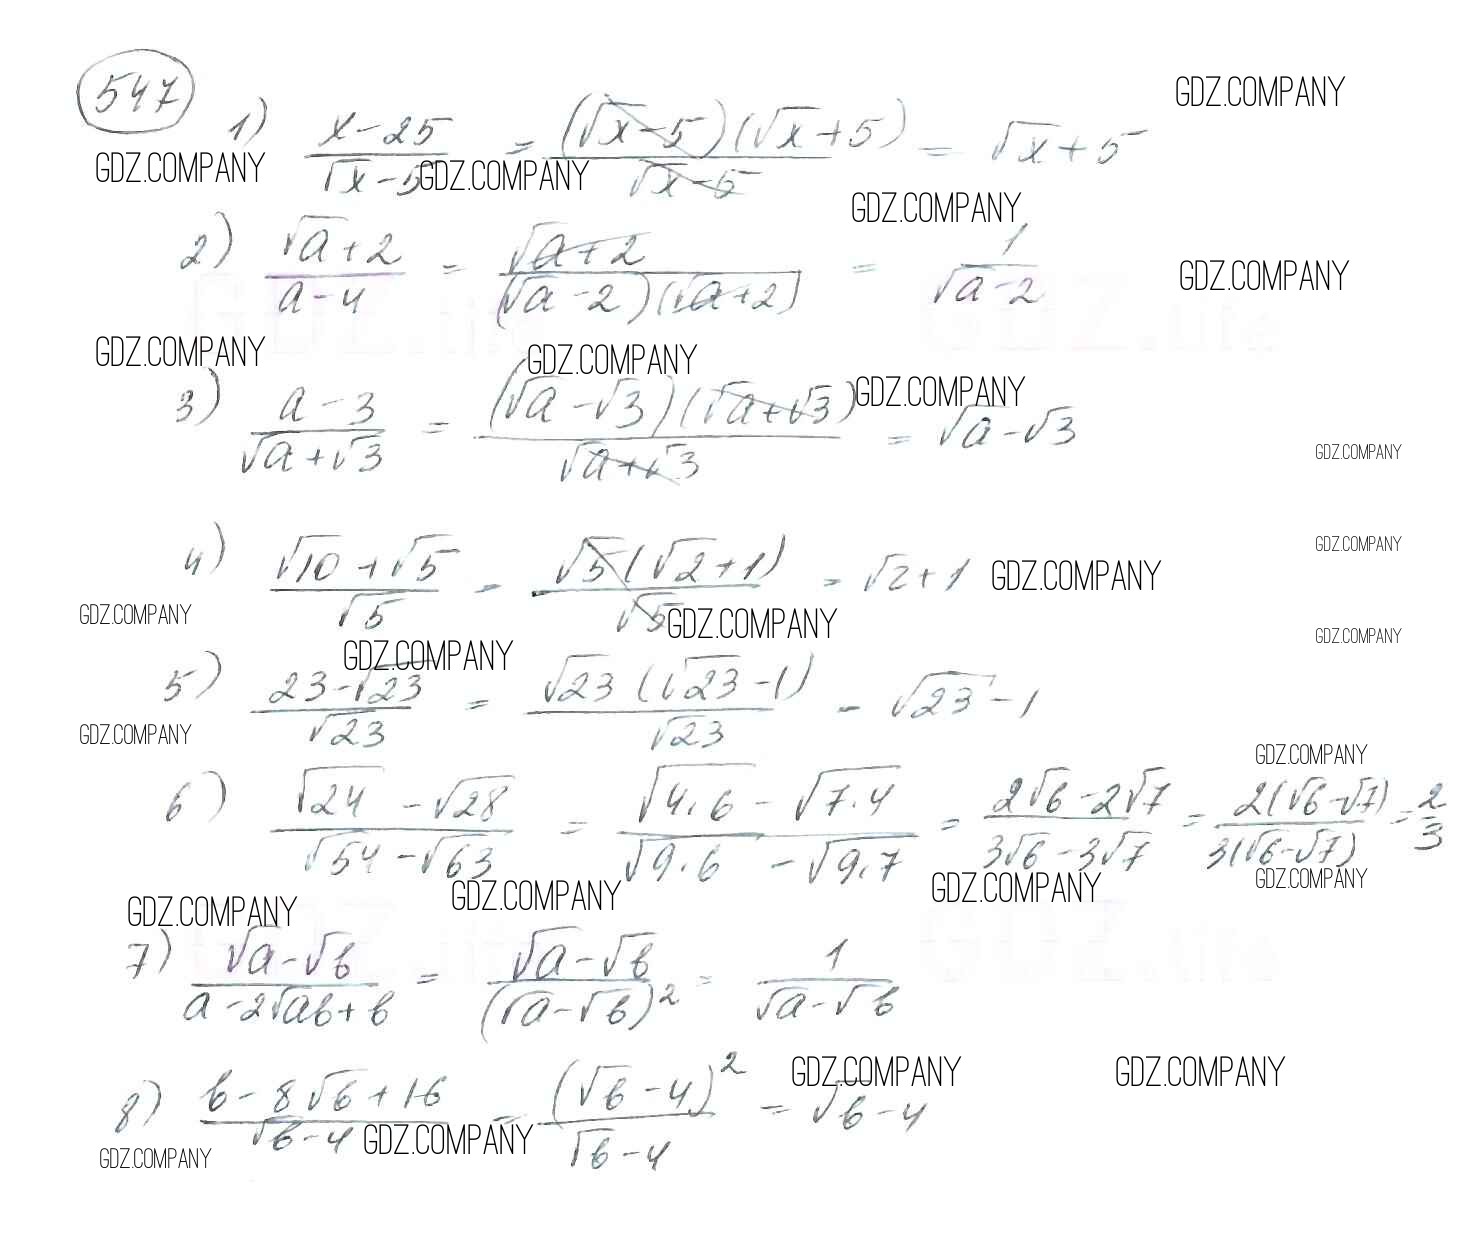 547
GDZ.COMPANY
1) (x-25)/(√x-5) = ((√x-5)(√x+5))/(√x-5) = √x+5
GDZ.COMPANY GDZ.COMPANY
GDZ.COMPANY
2) (√a+2)/(a-4) = (√a+2)/((√a-2)(√a+2)) = 1/(√a-2)
GDZ.COMPANY
GDZ.life GDZ.life
GDZ.COMPANY GDZ.COMPANY
GDZ.COMPANY
3) (a-3)/(√a+√3) = ((√a-√3)(√a+√3))/(√a+√3) = √a-√3
GDZ.COMPANY
GDZ.COMPANY
4) (√10+√5)/√5 = (√5(√2+1))/√5 = √2+1
GDZ.COMPANY
GDZ.COMPANY GDZ.COMPANY
GDZ.COMPANY
GDZ.COMPANY
5) (23-√23)/√23 = (√23(√23-1))/√23 = √23-1
GDZ.COMPANY
GDZ.COMPANY
6) (√24-√28)/(√54-√63) = (√4·6-√7·4)/(√9·6-√9·7) = (2√6-2√7)/(3√6-3√7) = (2(√6-√7))/(3(√6-√7)) = 2/3
GDZ.COMPANY GDZ.COMPANY GDZ.COMPANY GDZ.COMPANY
GDZ.life GDZ.life
7) (√a-√b)/(a-2√ab+b) = (√a-√b)/(√a-√b)² = 1/(√a-√b)
GDZ.COMPANY GDZ.COMPANY
8) (b-8√b+16)/(√b-4) = (√b-4)²/(√b-4) = √b-4
GDZ.COMPANY GDZ.COMPANY